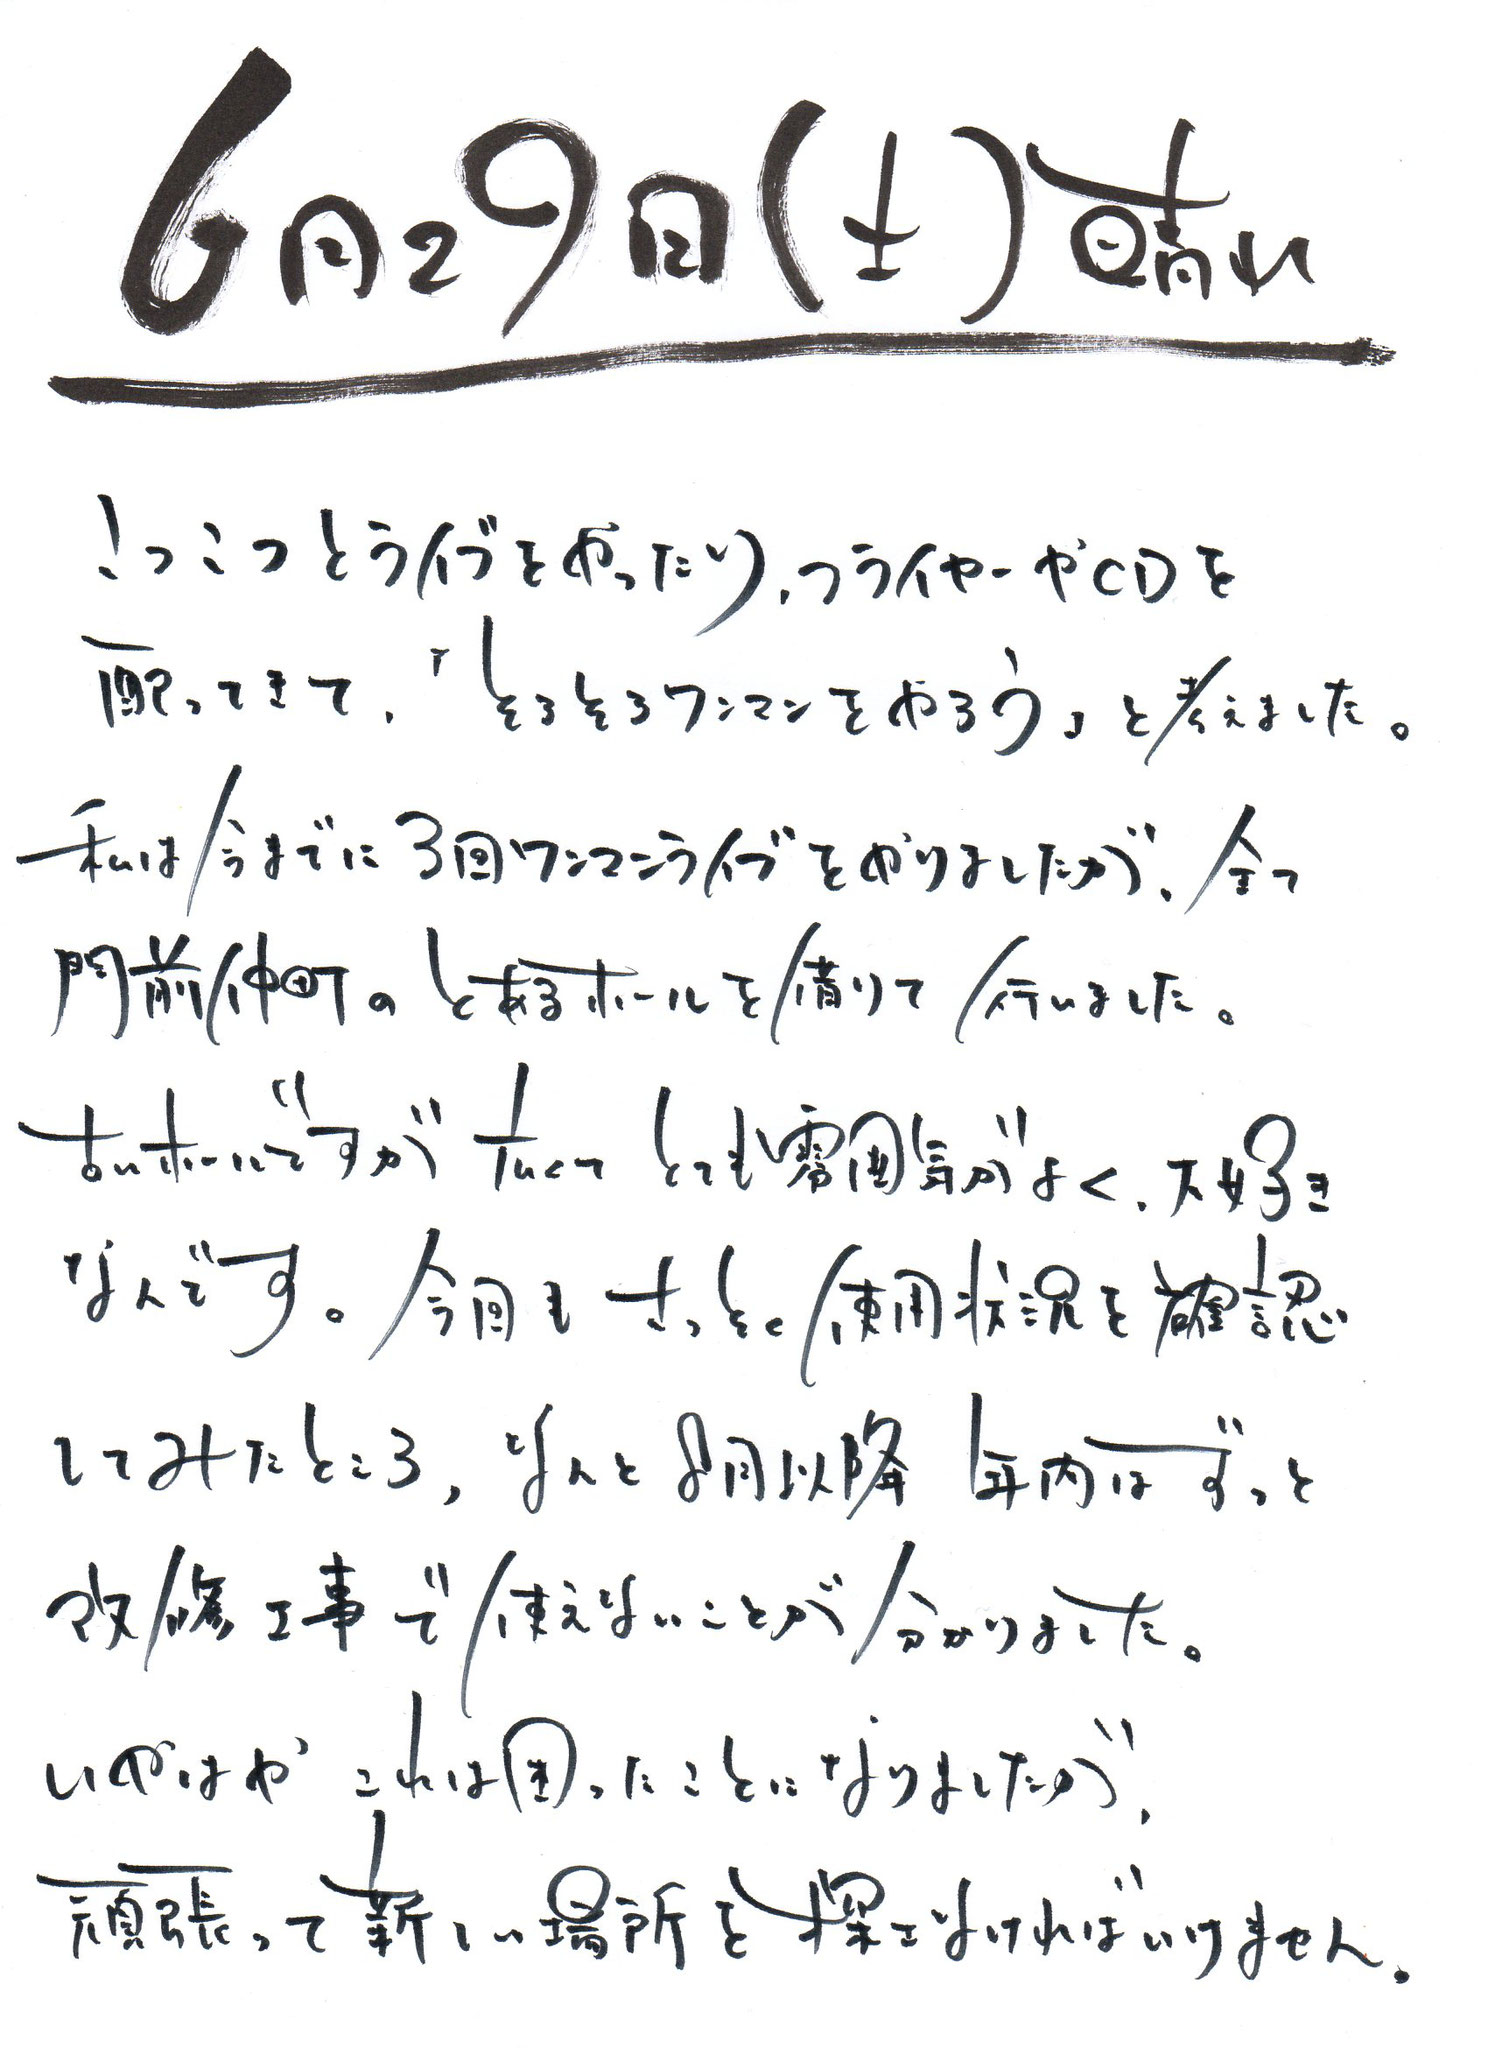 6月29日(土)晴れ
こつこつとライブをやったり、フライヤーやCDを
配ってきて、「そろそろワンマンをやろう」と考えました。
私は今までに3回ワンマンライブをやりましたが、全て
門前仲町のとあるホールを借りて行いました。
古いホールですが広くてとても雰囲気がよく、大好き
なんです。今回もさっそく使用状況を確認
してみたところ、なんと8月以降年内はずっと
改修工事で使えないことが分かりました。
いやはやこれは困ったことになりましたが、
頑張って新しい場所を探さなければいけません。